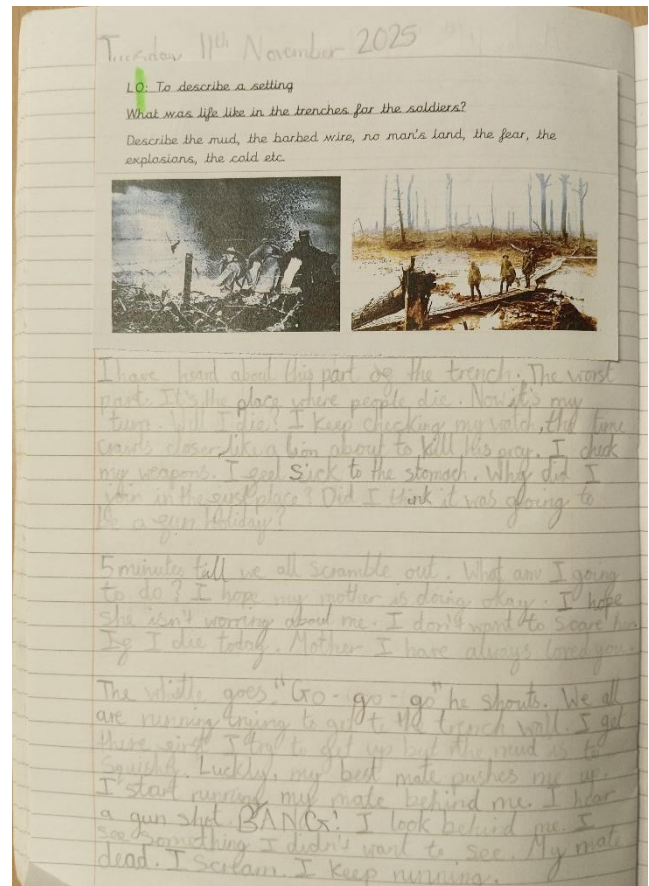 Tuesday 11th November 2025
LO: To describe a setting
What was life like in the trenches for the soldiers?
Describe the mud, the barbed wire, no man's land, the fear, the
explosions, the cold etc.
I have heard about this part of the trench. The worst
part. It's the place where people die. Now it's my
turn. Will I die? I keep checking my watch, the time
crawls closer like a lion about to kill his prey. I check
my weapons. I feel sick to the stomach. Why did I
join in the first place? Did I think it was going to
be a fun holiday?
5 minutes till we all scramble out. What am I going
to do? I hope my mother is doing okay. I hope
she isn't worring about me. I don't want to scare her
If I die today. Mother I have always loved you.
The whistle goes "Go-go-go" he shouts. We all
are running trying to get to the trench wall. I get
there first I try to get up but the mud is to
squishy. Luckly, my best mate pushes me up.
I start running my mate behind me. I hear
a gun shot. BANG! I look behind me. I
see something I didn't want to see. My mate
dead. I scream. I keep running.